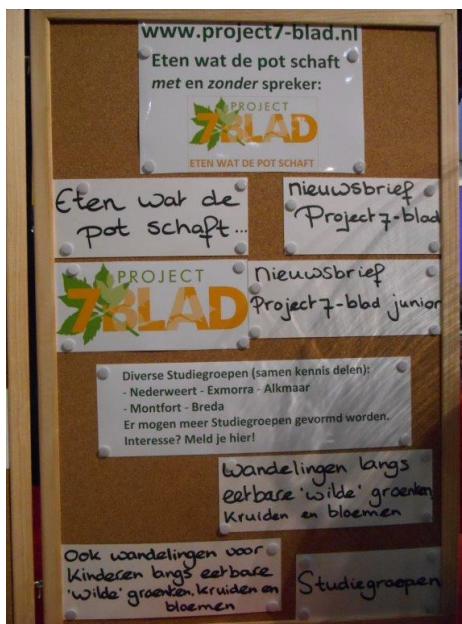 www.project7-blad.nl
Eten wat de pot schaft
met en zonder spreker:
PROJECT
7BLAD
ETEN WAT DE POT SCHAFT
Eten wat de
pot schaft...
nieuwsbrief
Project7-blad
PROJECT
7BLAD
nieuwsbrief
Project7-blad junior
Diverse Studiegroepen (samen kennis delen):
- Nederweert - Exmorra - Alkmaar
- Montfort - Breda
Er mogen meer Studiegroepen gevormd worden.
Interesse? Meld je hier!
Wandelingen langs
eetbare 'wilde' groenten,
kruiden en bloemen
Ook wandelingen voor
Kinderen langs eetbare
'wilde' groenten, kruiden en
bloemen
Studiegroepen